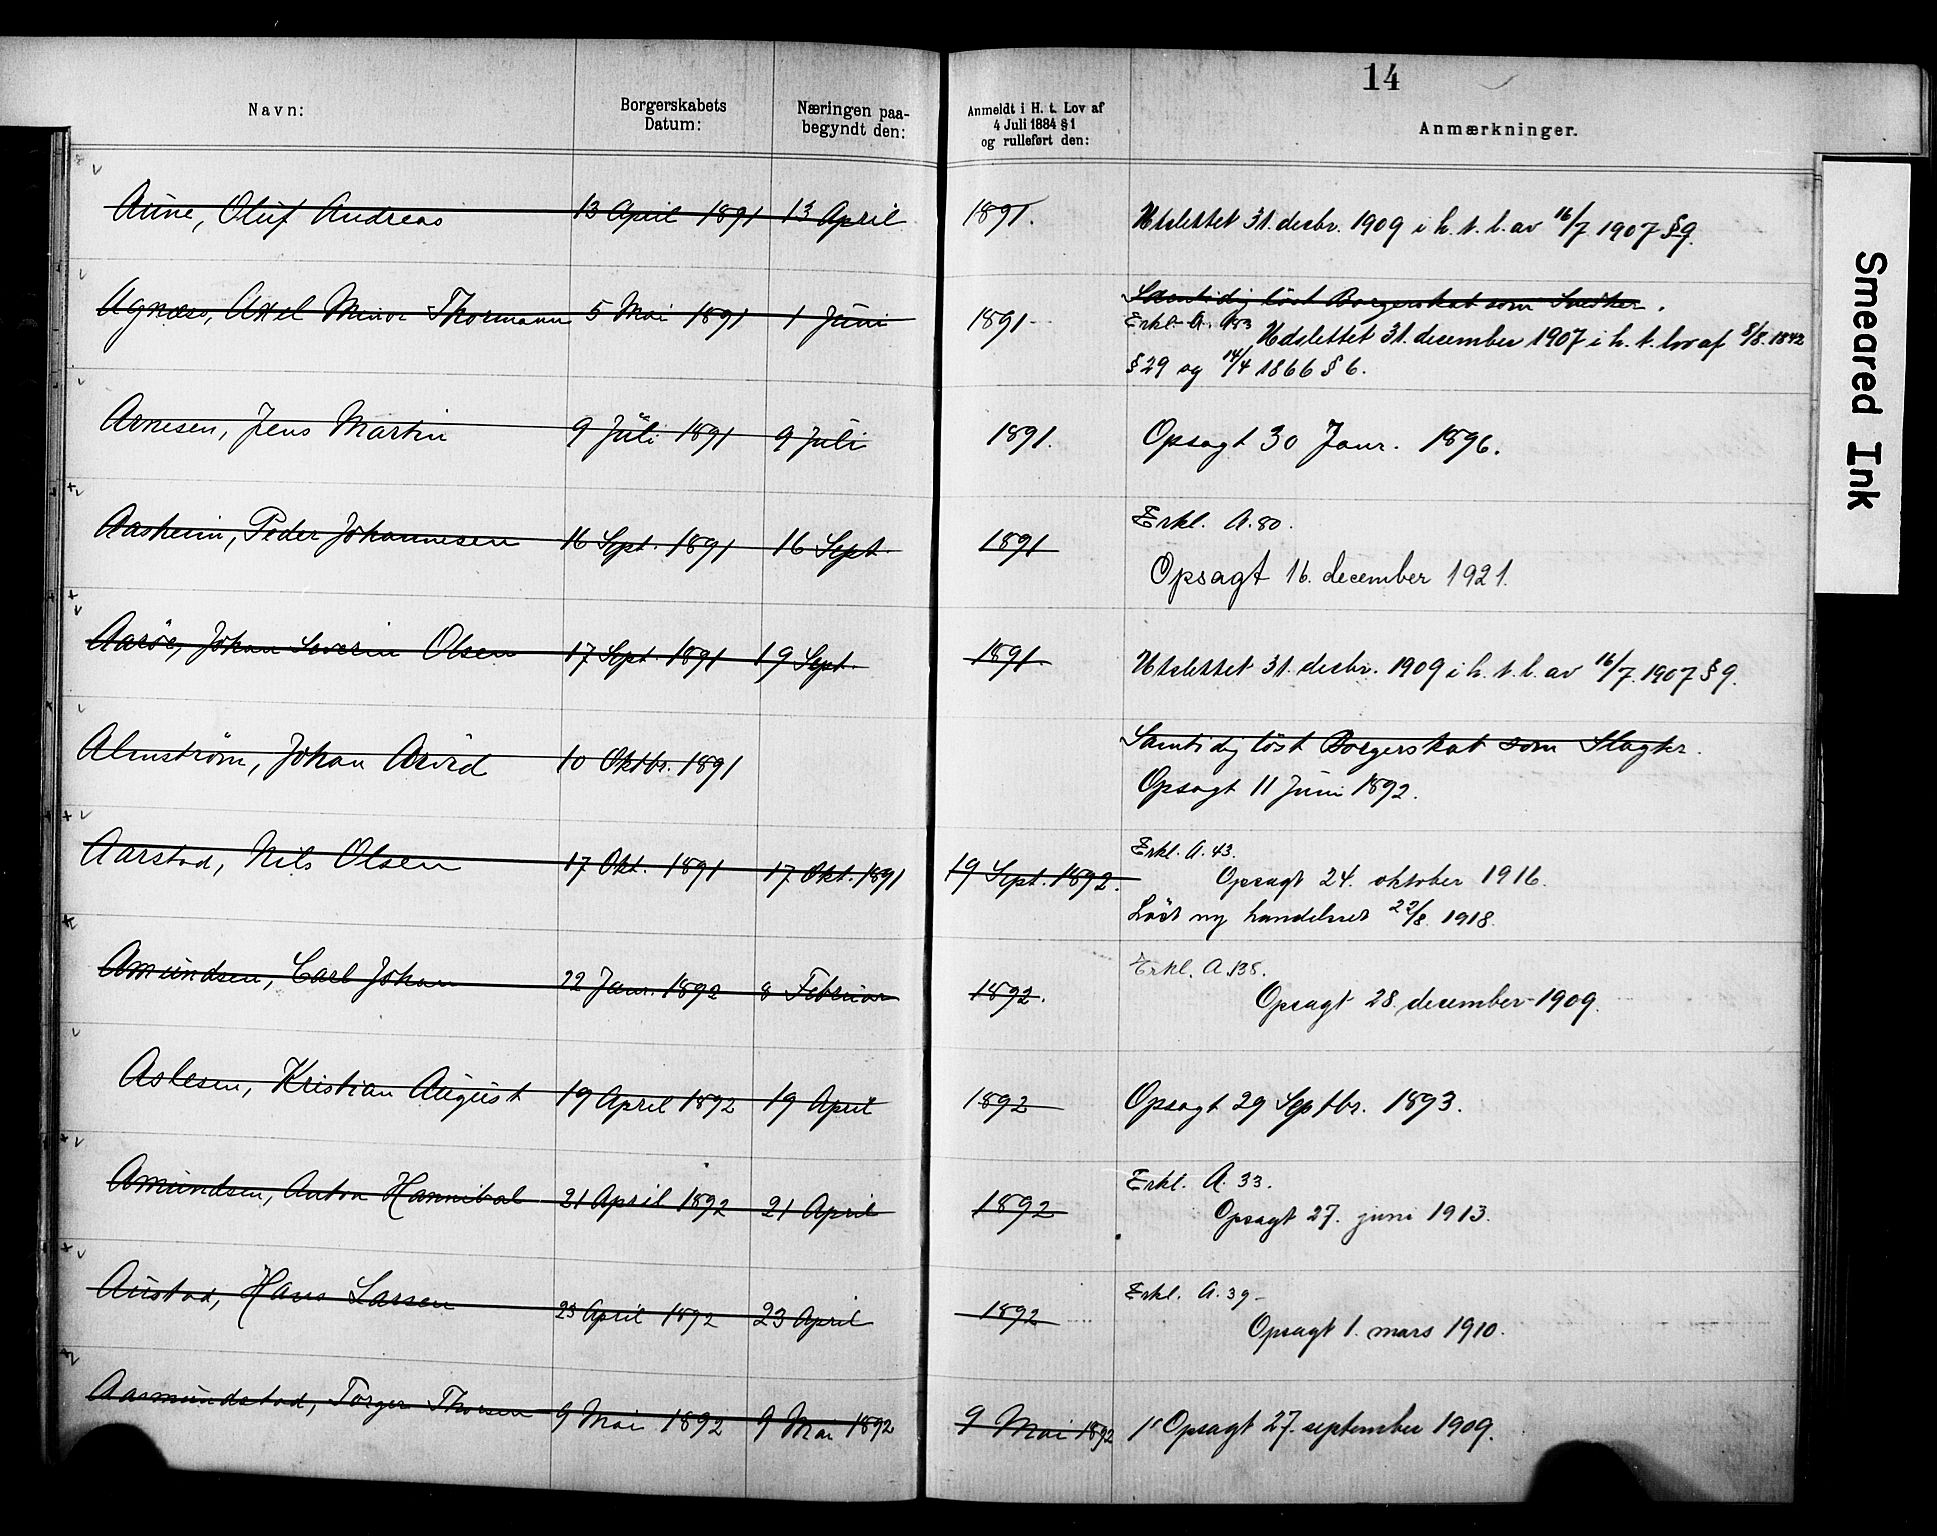 14
Navn:
Borgerskabets
Datum:
Næringen paa-
begyndt den:
Anmeldt i H. t. Lov af
4 Juli 1884 § 1
og rulleført den:
Anmærkninger.
Aune, Oluf Andreas 13 April 1891 13 April 1891. Utslettet 31. desbr. 1909 i h. t. l. av 16/7 1907 § 9.
Samtidig løst Borgerskab som Snedker.
Agnæs, Axel Minor Thormann 5 Mai 1891 1 Juni 1891 Erkl. A. 183 Udslettet 31. december 1907 i h. t. lov af 8/8. 1842
§ 29 og 14/4 1866 § 6.
Arnesen, Jens Martin 9 Juli 1891 9 Juli 1891. Opsagt 30 Janr. 1896.
Erkl. A. 80.
Aasheim, Peder Johannesen 16 Sept. 1891 16 Sept. 1891
Opsagt 16. december 1921.
Aarøe, Johan Severin Olsen 17 Sept. 1891 19 Sept. 1891. Utslettet 31. desbr. 1909 i h. t. l. av 16/7. 1907 § 9.
Samtidig løst Borgerskab som Slagter.
Almstrøm, Johan Arvid 10 Oktbr. 1891
Opsagt 11 Juni 1892.
Erkl. A. 43.
Aarstad, Nils Olsen 17 Okt. 1891 17 Okt. 1891 19 Sept. 1892. Opsagt 24. oktober 1916.
Løst ny handelsret 22/8. 1918.
Erkl. A. 138.
Amundsen, Carl Johan 22 Janr. 1892 8 Februar 1892. Opsagt 28. december 1909.
Aslesen, Kristian August 19 April 1892 19 April 1892 Opsagt 29 Septbr. 1893.
Erkl. A. 33.
Amundsen, Anton Hannibal 21 April 1892 21 April 1892 Opsagt 27. juni 1913.
Erkl. A. 39
Austad, Hans Larsen 23 April 1892 23 April 1892
Opsagt 1. mars 1910.
Aasmundstad, Torger Thorsen 9 Mai 1892 9 Mai 1892 9 Mai 1892 Opsagt 27. september 1909.
Smeared Ink